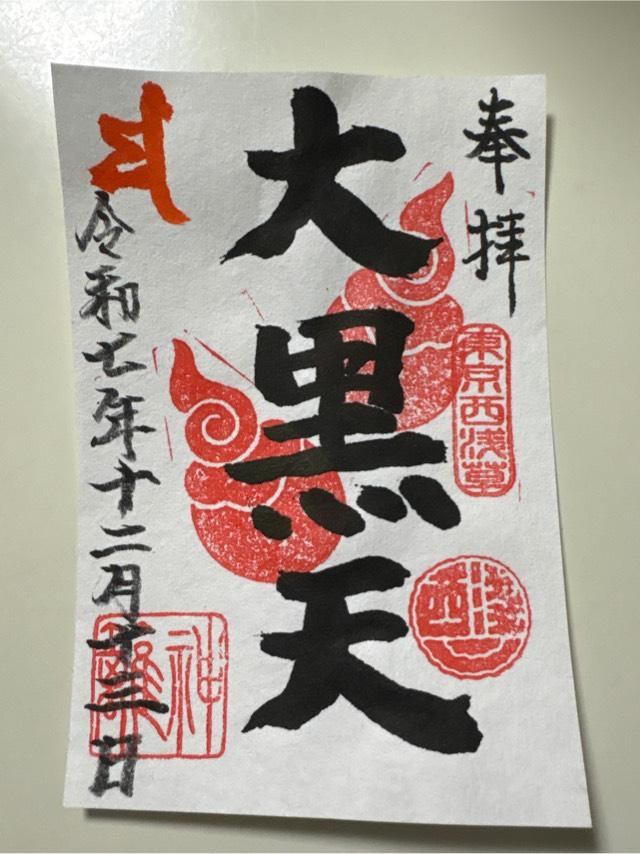 奉拝
東京西浅草
大黒天
令和七年十二月十三日